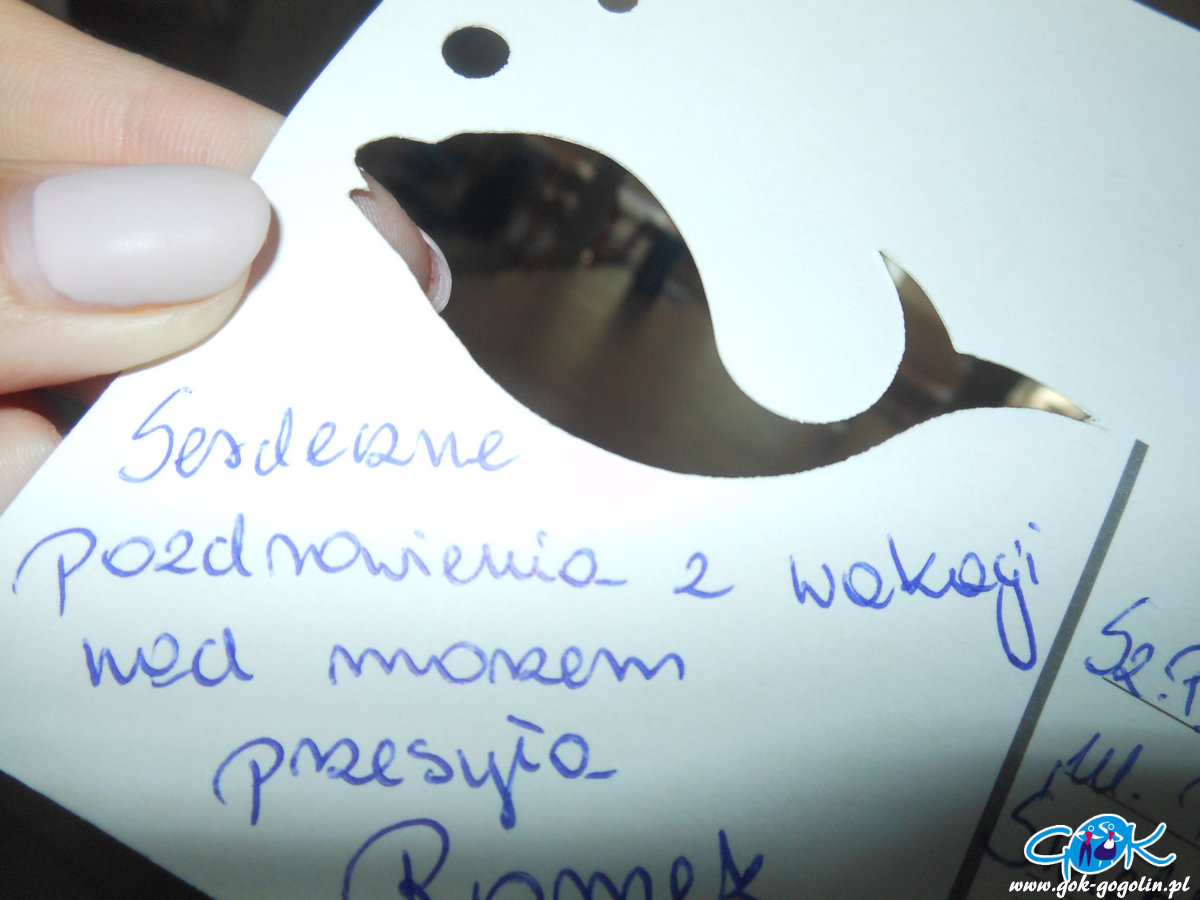 Serdeczne
pozdrowienia z wakacji
nad morzem
przesyła
Romek
Sz. P
ul.
GOK
www.gok-gogolin.pl